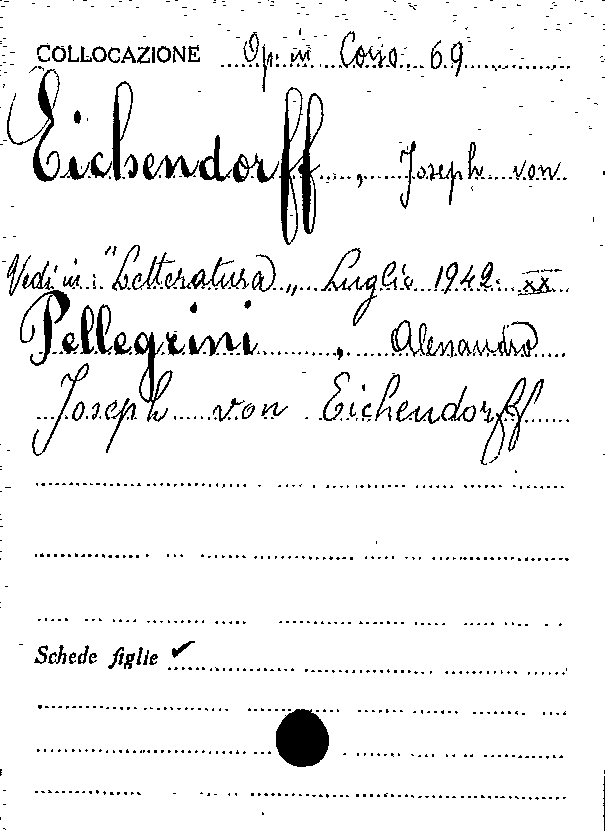 COLLOCAZIONE Op. in Corso 69
Eichendorff, Joseph von
Vedi in: "Letteratura„ Luglio 1942. XX
Pellegrini, Alessandro
Joseph von Eichendorff
Schede figlie ✓